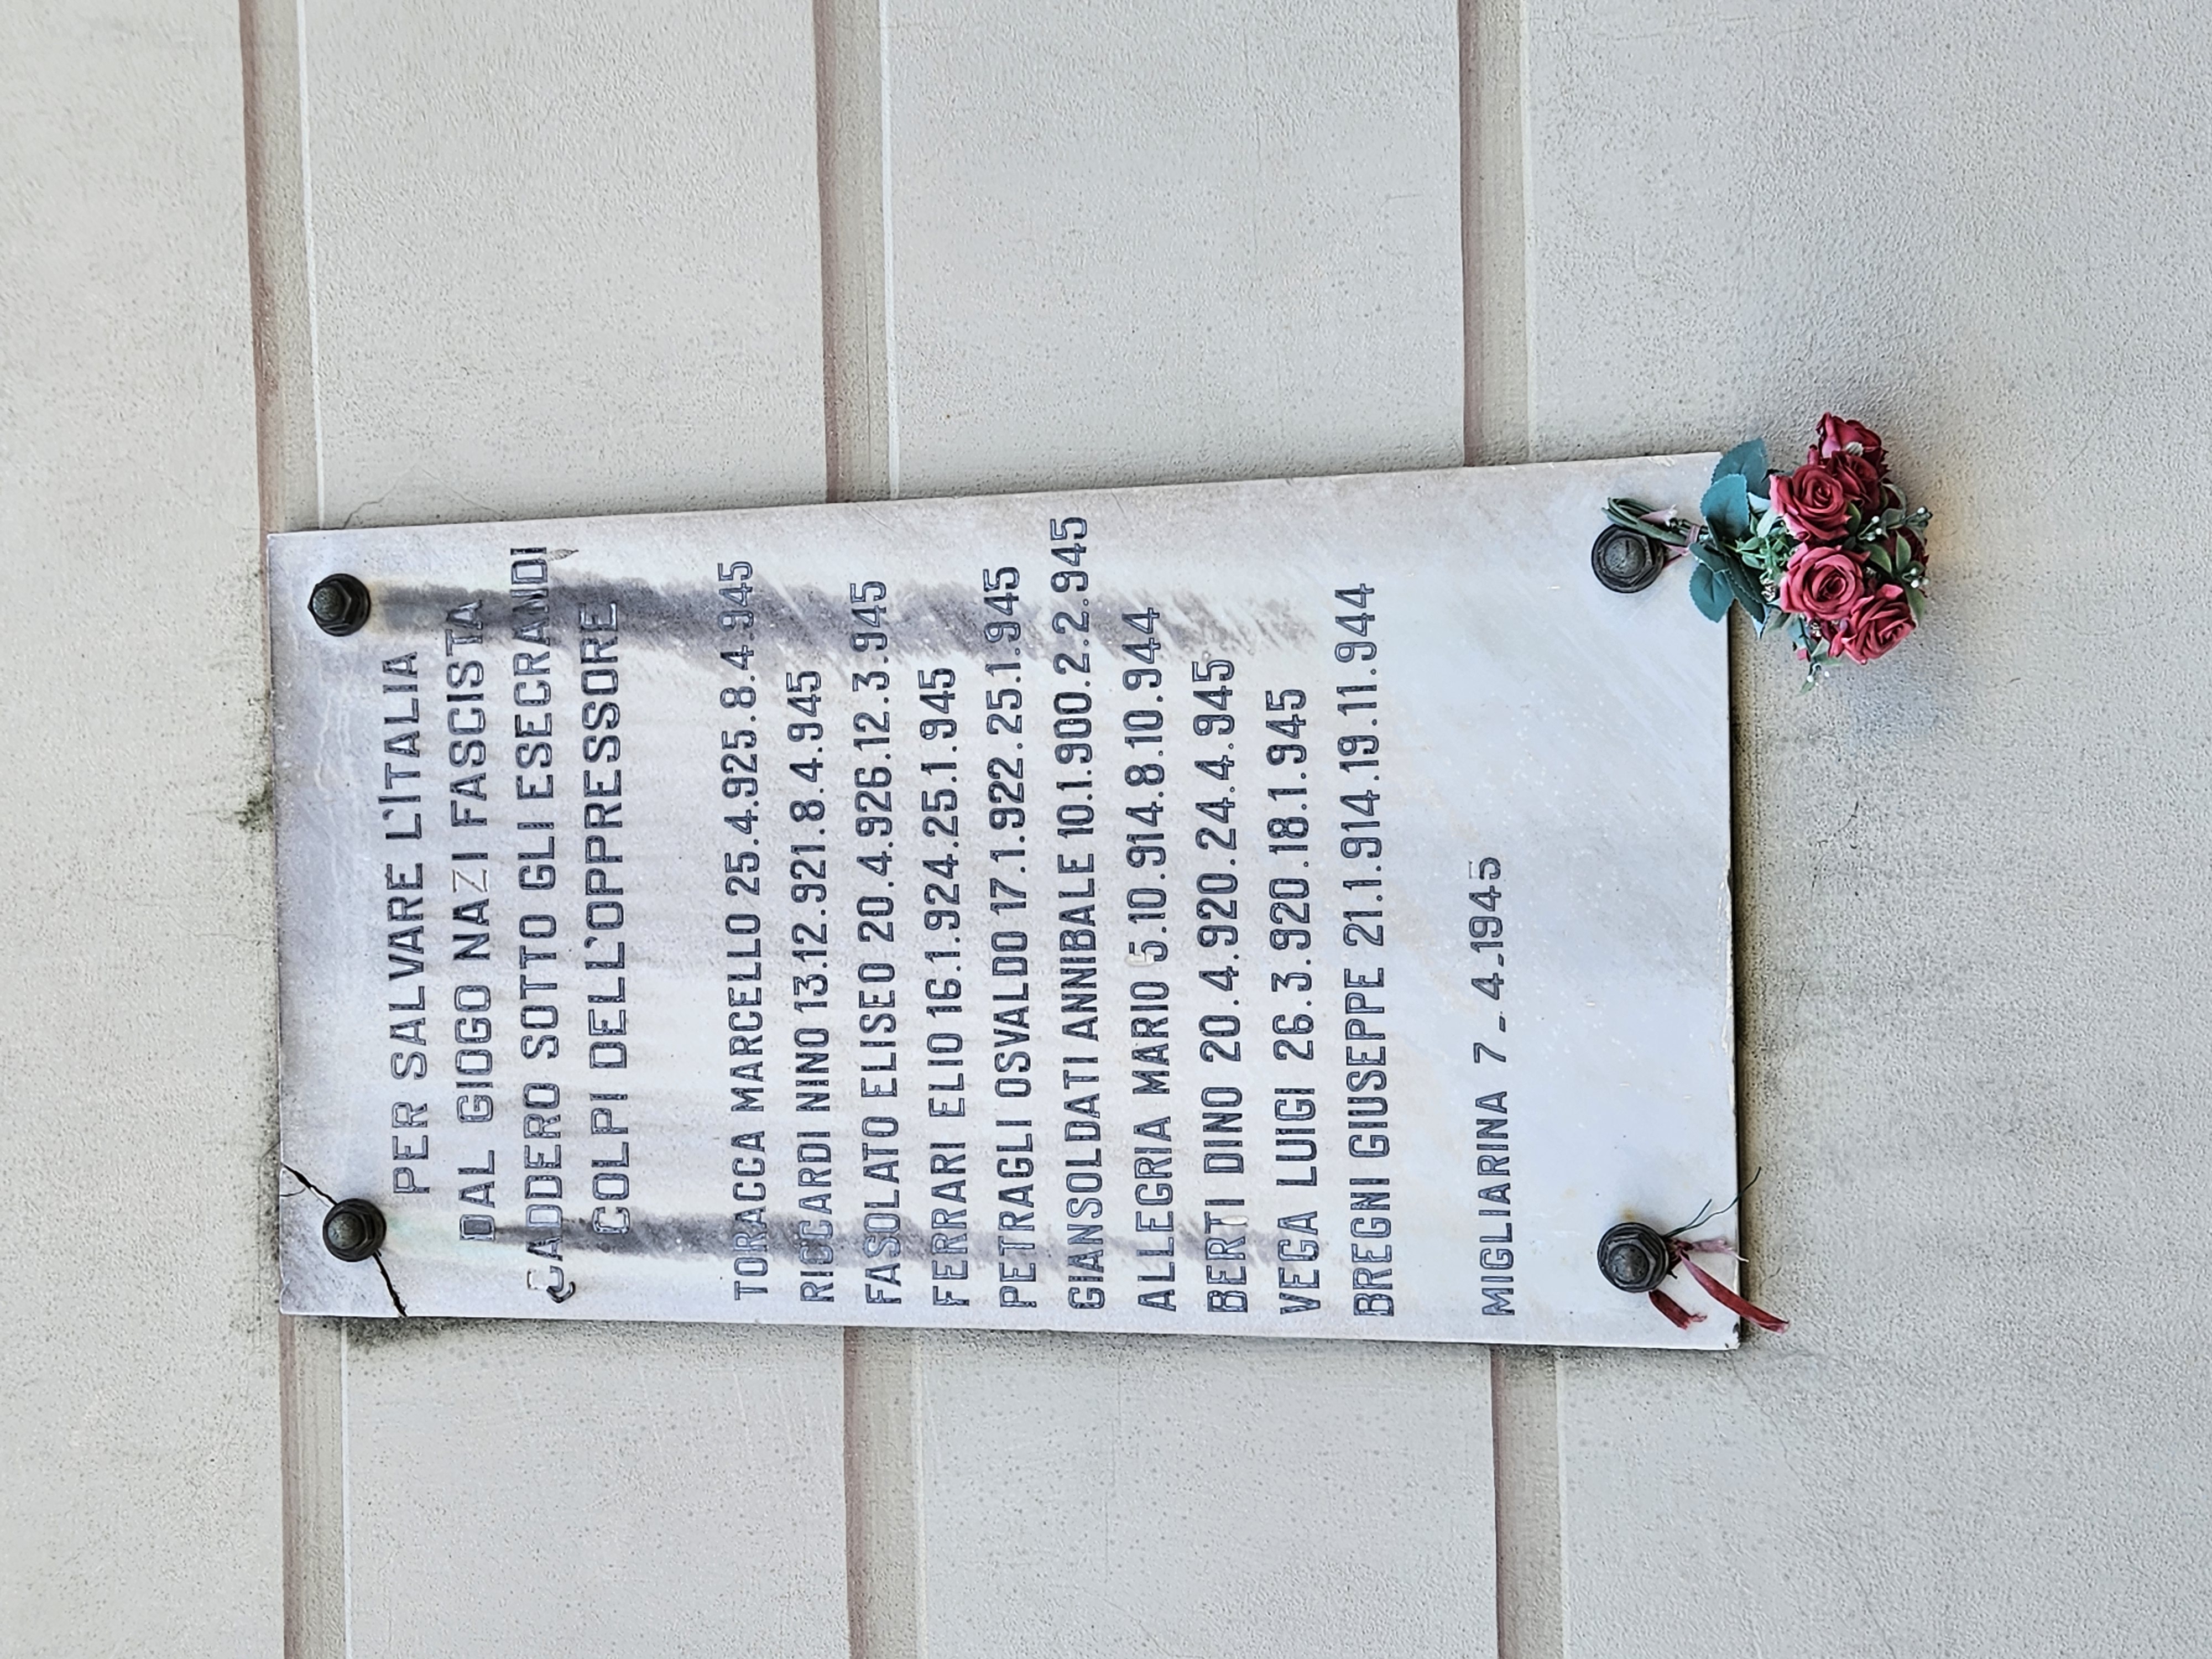 PER SALVARE L'ITALIA
DAL GIOGO NAZI FASCISTA
CADDERO SOTTO GLI ESECRANDI
COLPI DELL'OPPRESSORE
TORACCA MARCELLO 25.4.925.8.4.945
RICCARDI NINO 13.12.921.8.4.945
FASOLATO ELISEO 20.4.926.12.3.945
FERRARI ELIO 16.1.924.25.1.945
PETRAGLI OSVALDO 17.1.922.25.1.945
GIANSOLDATI ANNIBALE 10.1.900.2.2.945
ALLEGRIA MARIO 5.10.914.8.10.944
BERTI DINO 20.4.920.24.4.945
VEGA LUIGI 26.3.920.18.1.945
BREGNI GIUSEPPE 21.1.914.19.11.944
MIGLIARINA 7-4-1945